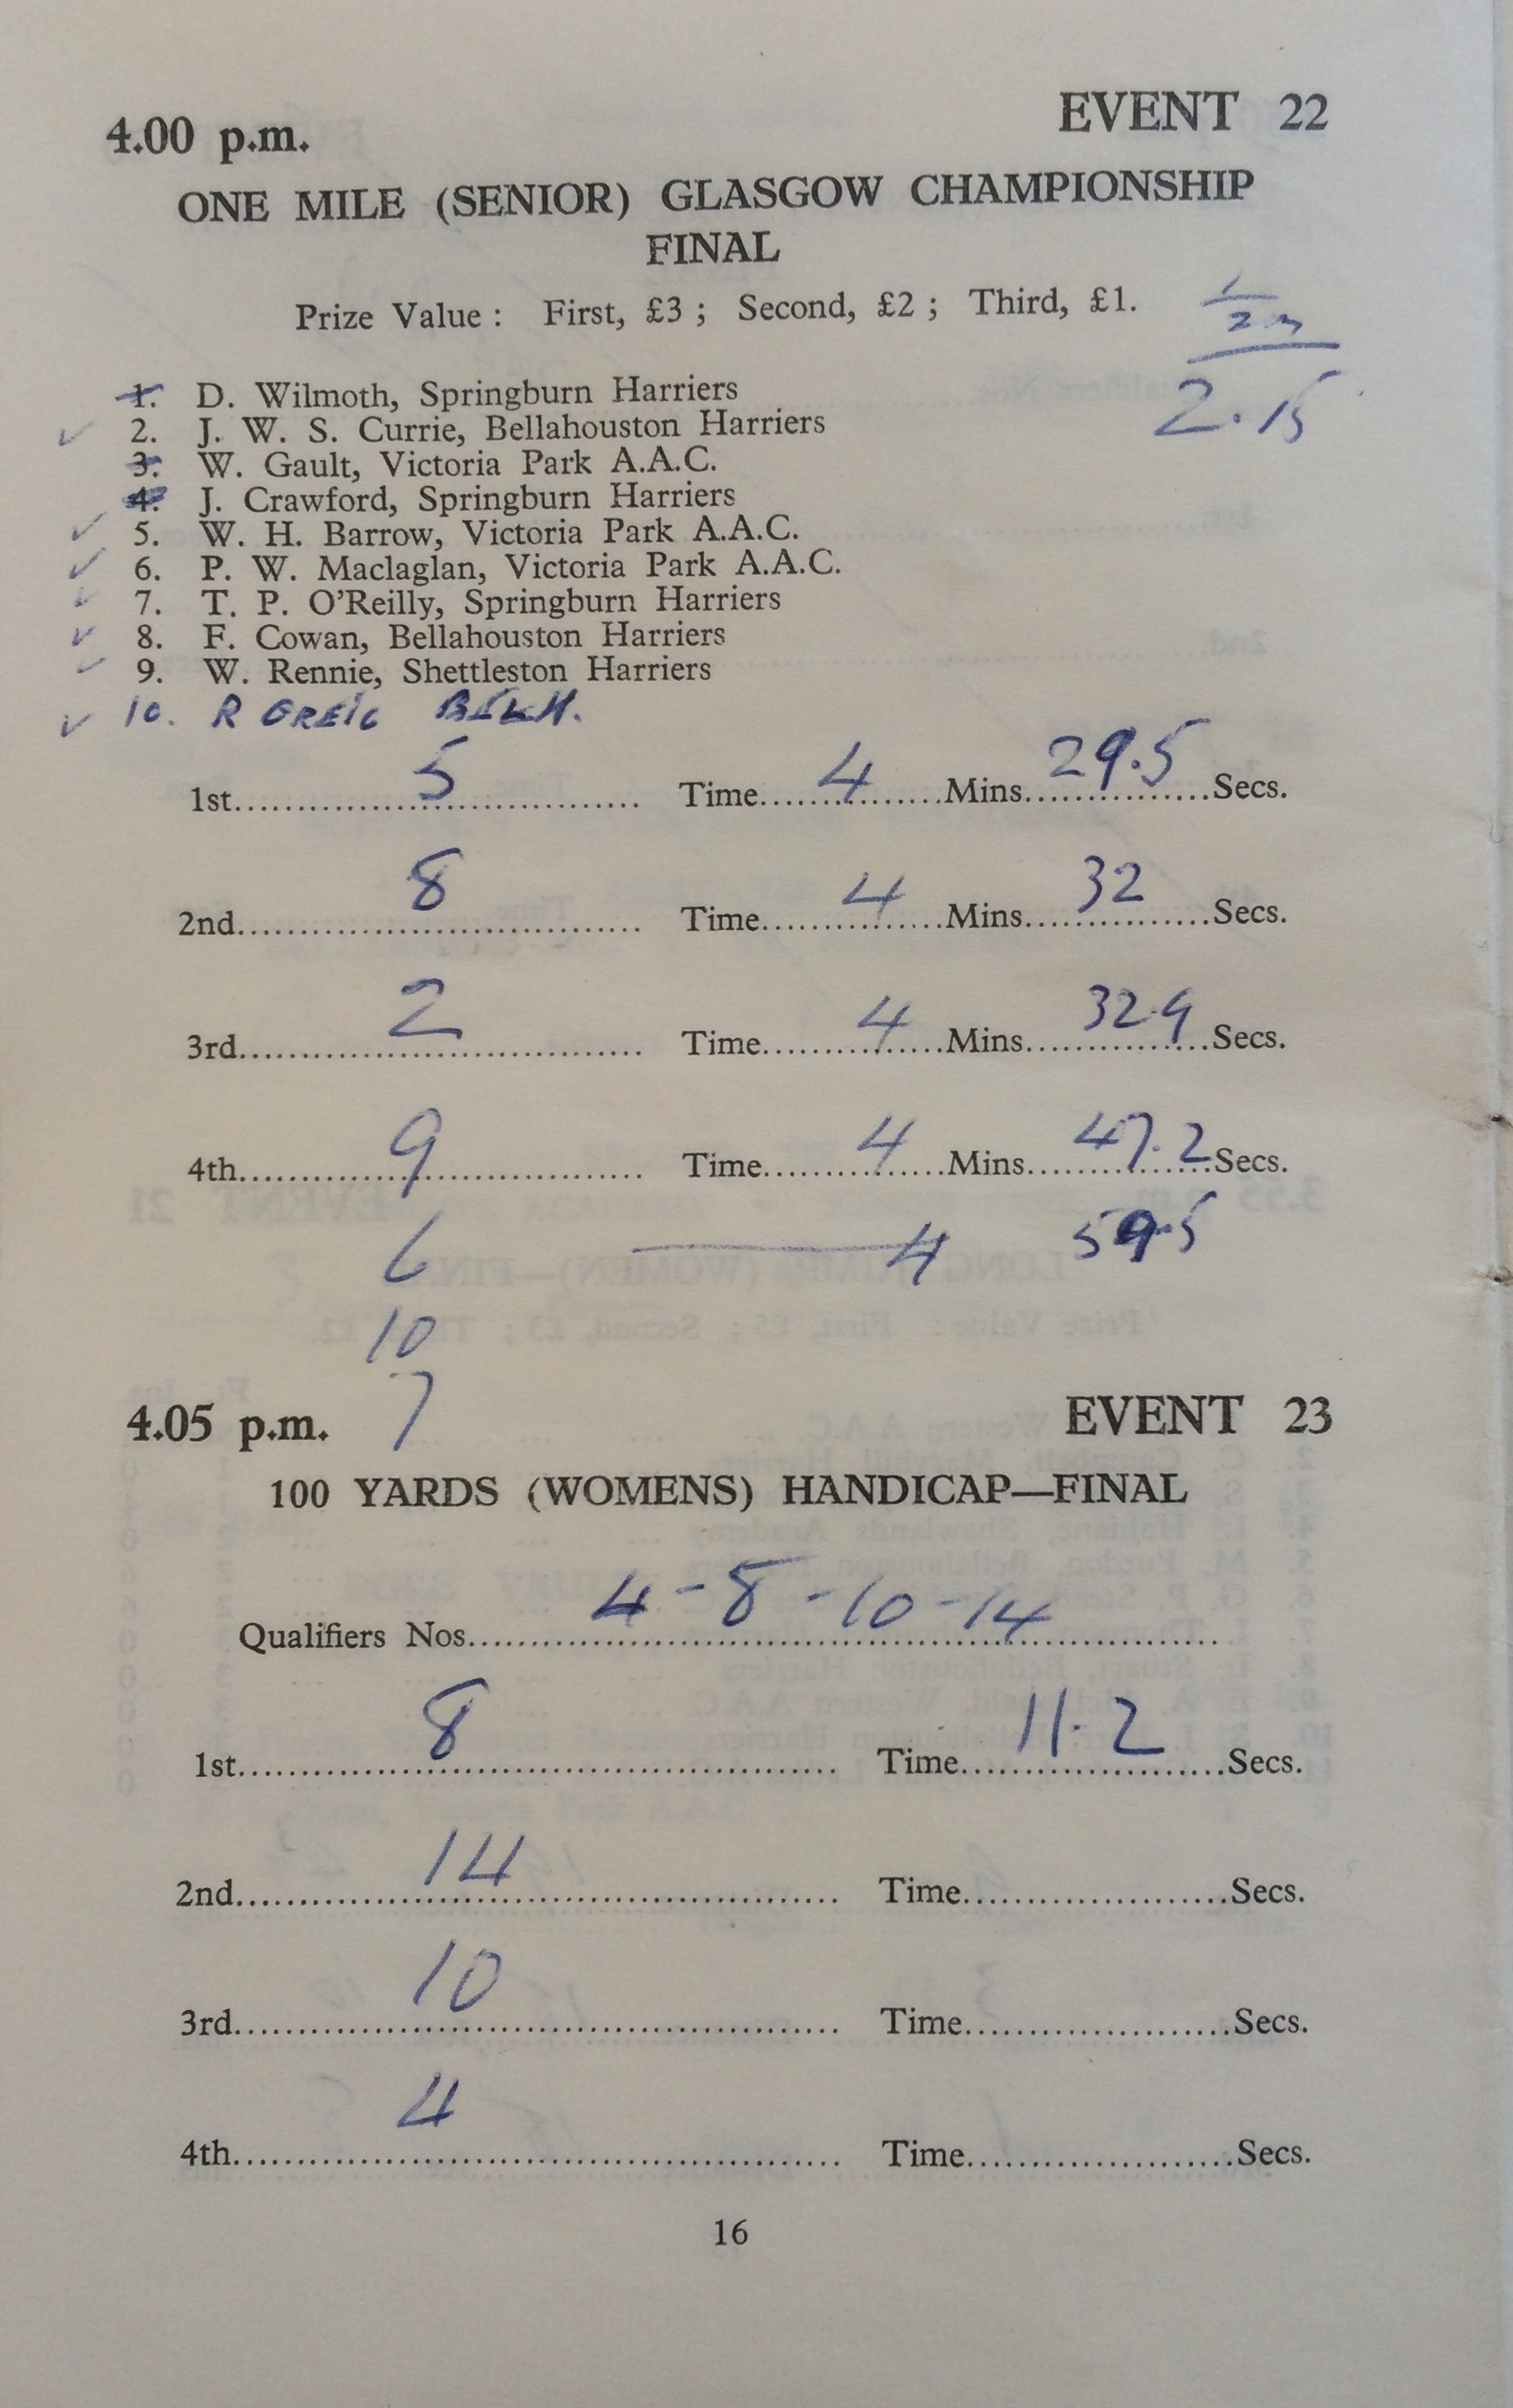 4.00 p.m.
EVENT 22
ONE MILE (SENIOR) GLASGOW CHAMPIONSHIP
FINAL
Prize Value : First, £3 ; Second, £2 ; Third, £1.
1/2 m
2.15
1. D. Wilmoth, Springburn Harriers
2. J. W. S. Currie, Bellahouston Harriers
3. W. Gault, Victoria Park A.A.C.
4. J. Crawford, Springburn Harriers
✓ 5. W. H. Barrow, Victoria Park A.A.C.
✓ 6. P. W. Maclaglan, Victoria Park A.A.C.
✓ 7. T. P. O'Reilly, Springburn Harriers
✓ 8. F. Cowan, Bellahouston Harriers
✓ 9. W. Rennie, Shettleston Harriers
✓ 10. R GREIG BELH.
1st. 5 Time 4 Mins. 29.5 Secs.
2nd. 8 Time 4 Mins. 32 Secs.
3rd. 2 Time 4 Mins. 32.9 Secs.
4th. 9 Time 4 Mins. 47.2 Secs.
6 4 59.5
10
7
4.05 p.m.
EVENT 23
100 YARDS (WOMENS) HANDICAP—FINAL
Qualifiers Nos. 4-8-10-14
1st. 8 Time 11.2 Secs.
2nd. 14 Time Secs.
3rd. 10 Time Secs.
4th. 4 Time Secs.
16